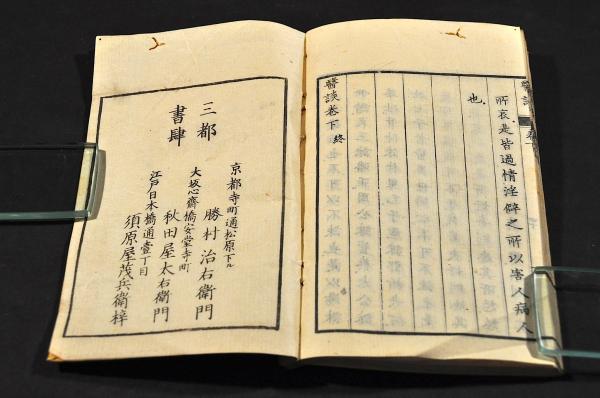 所哀是皆過情淫僻之所以害人病人
也
醫談卷下終
三都
書肆
京都寺町通松原下ル
勝村治右衛門
大坂心齋橋安堂寺町
秋田屋太右衛門
江戸日本橋通壹丁目
須原屋茂兵衛梓